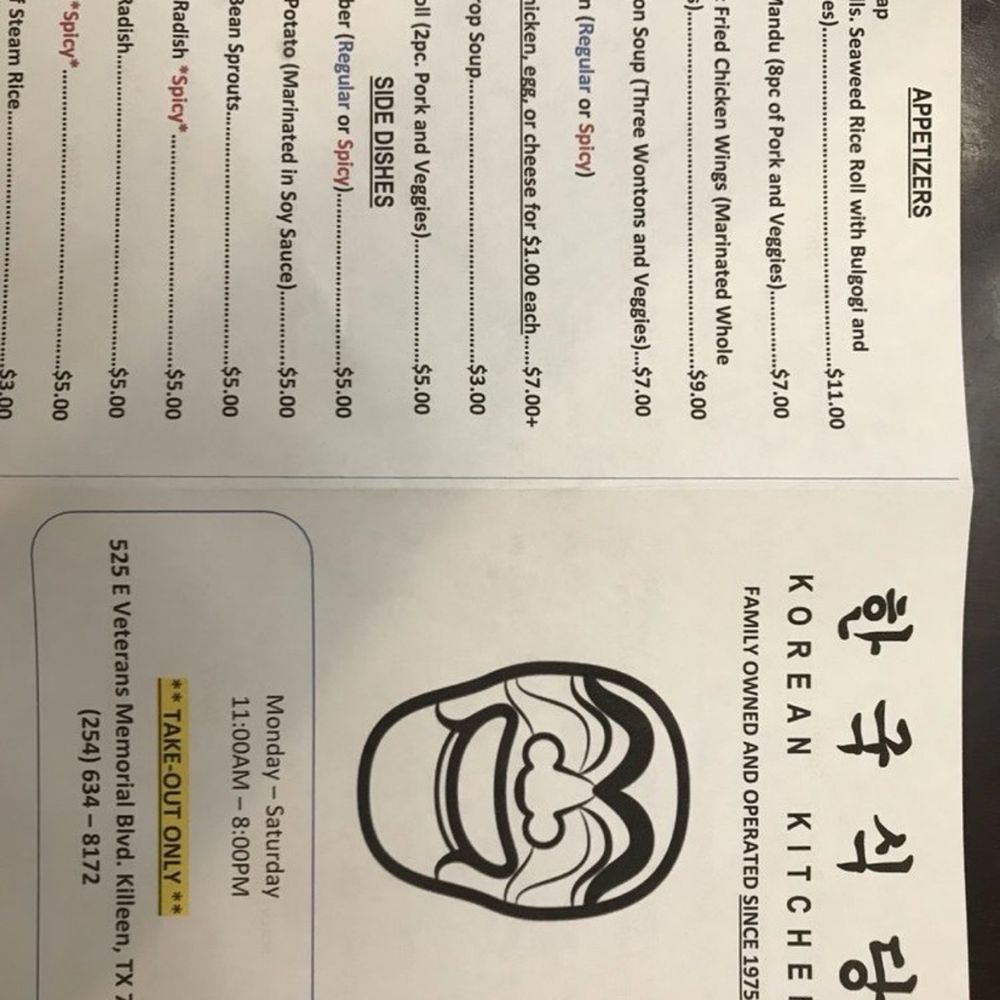 APPETIZERS
Seaweed Rice Roll with Bulgogi and
$11.00
(8pc of Pork and Veggies) $7.00
Fried Chicken Wings (Marinated Whole
$9.00
Soup (Three Wontons and Veggies)...$7.00
(Regular or Spicy)
egg, or cheese for $1.00 each......$7.00+
Soup $3.00
(2pc. Pork and Veggies) $5.00
SIDE DISHES
(Regular or Spicy) $5.00
Potato (Marinated in Soy Sauce) $5.00
Bean Sprouts $5.00
Radish *Spicy* $5.00
Radish $5.00
*Spicy* $5.00
Steam Rice $3.00
한국식당
KOREAN
FAMILY OWNED AND OPERATED SINCE 1975
Monday – Saturday
11:00AM – 8:00PM
** TAKE-OUT ONLY **
525 E Veterans Memorial Blvd. Killeen, TX
(254) 634 – 8172